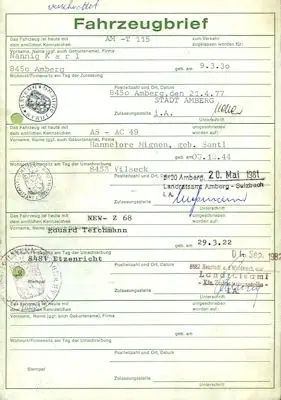 verschrottet
Fahrzeugbrief
Das Fahrzeug ist heute mit dem amtlichen Kennzeichen
AM -T 115
zum Verkehr zugelassen worden für:
Name, Vorname (ggf. auch Geburtsname), Firma
Nannig K a r l
geb. am
9.3.30
845o Amberg
Wohnort/Firmensitz am Tag der Zulassung
Postleitzahl und Ort, Datum
845o Amberg, den 21.4.77
STADT AMBERG
Zulassungsstelle
i.A.
Unterschrift
Das Fahrzeug ist heute mit dem amtlichen Kennzeichen
AS - AC 49
umgeschrieben worden auf:
Name, Vorname (ggf. auch Geburtsname), Firma
Hannelore Mignon, geb. Santl
geb. am
.11.44
Wohnort/Firmensitz am Tag der Umschreibung
8453 Vilseck
Postleitzahl und Ort, Datum
Amberg, 20. Mai 1981
Landratsamt Amberg - Sulzbach
Zulassungsstelle
I.A.
Unterschrift
Das Fahrzeug ist heute mit dem amtlichen Kennzeichen
NEW- Z 68
umgeschrieben worden auf:
Eduard Teichmann
geb. am
29.3.22
Wohnort/Firmensitz am Tag der Umschreibung
8481 Etzenricht
Postleitzahl und Ort, Datum
Sep. 1982
Landratsamt
Stempel
Zulassungsstelle
Unterschrift
Das Fahrzeug ist heute mit dem amtlichen Kennzeichen
umgeschrieben worden auf:
Name, Vorname (ggf. auch Geburtsname), Firma
geb. am
Wohnort/Firmensitz am Tag der Umschreibung
Postleitzahl und Ort, Datum
Stempel
Zulassungsstelle
Unterschrift